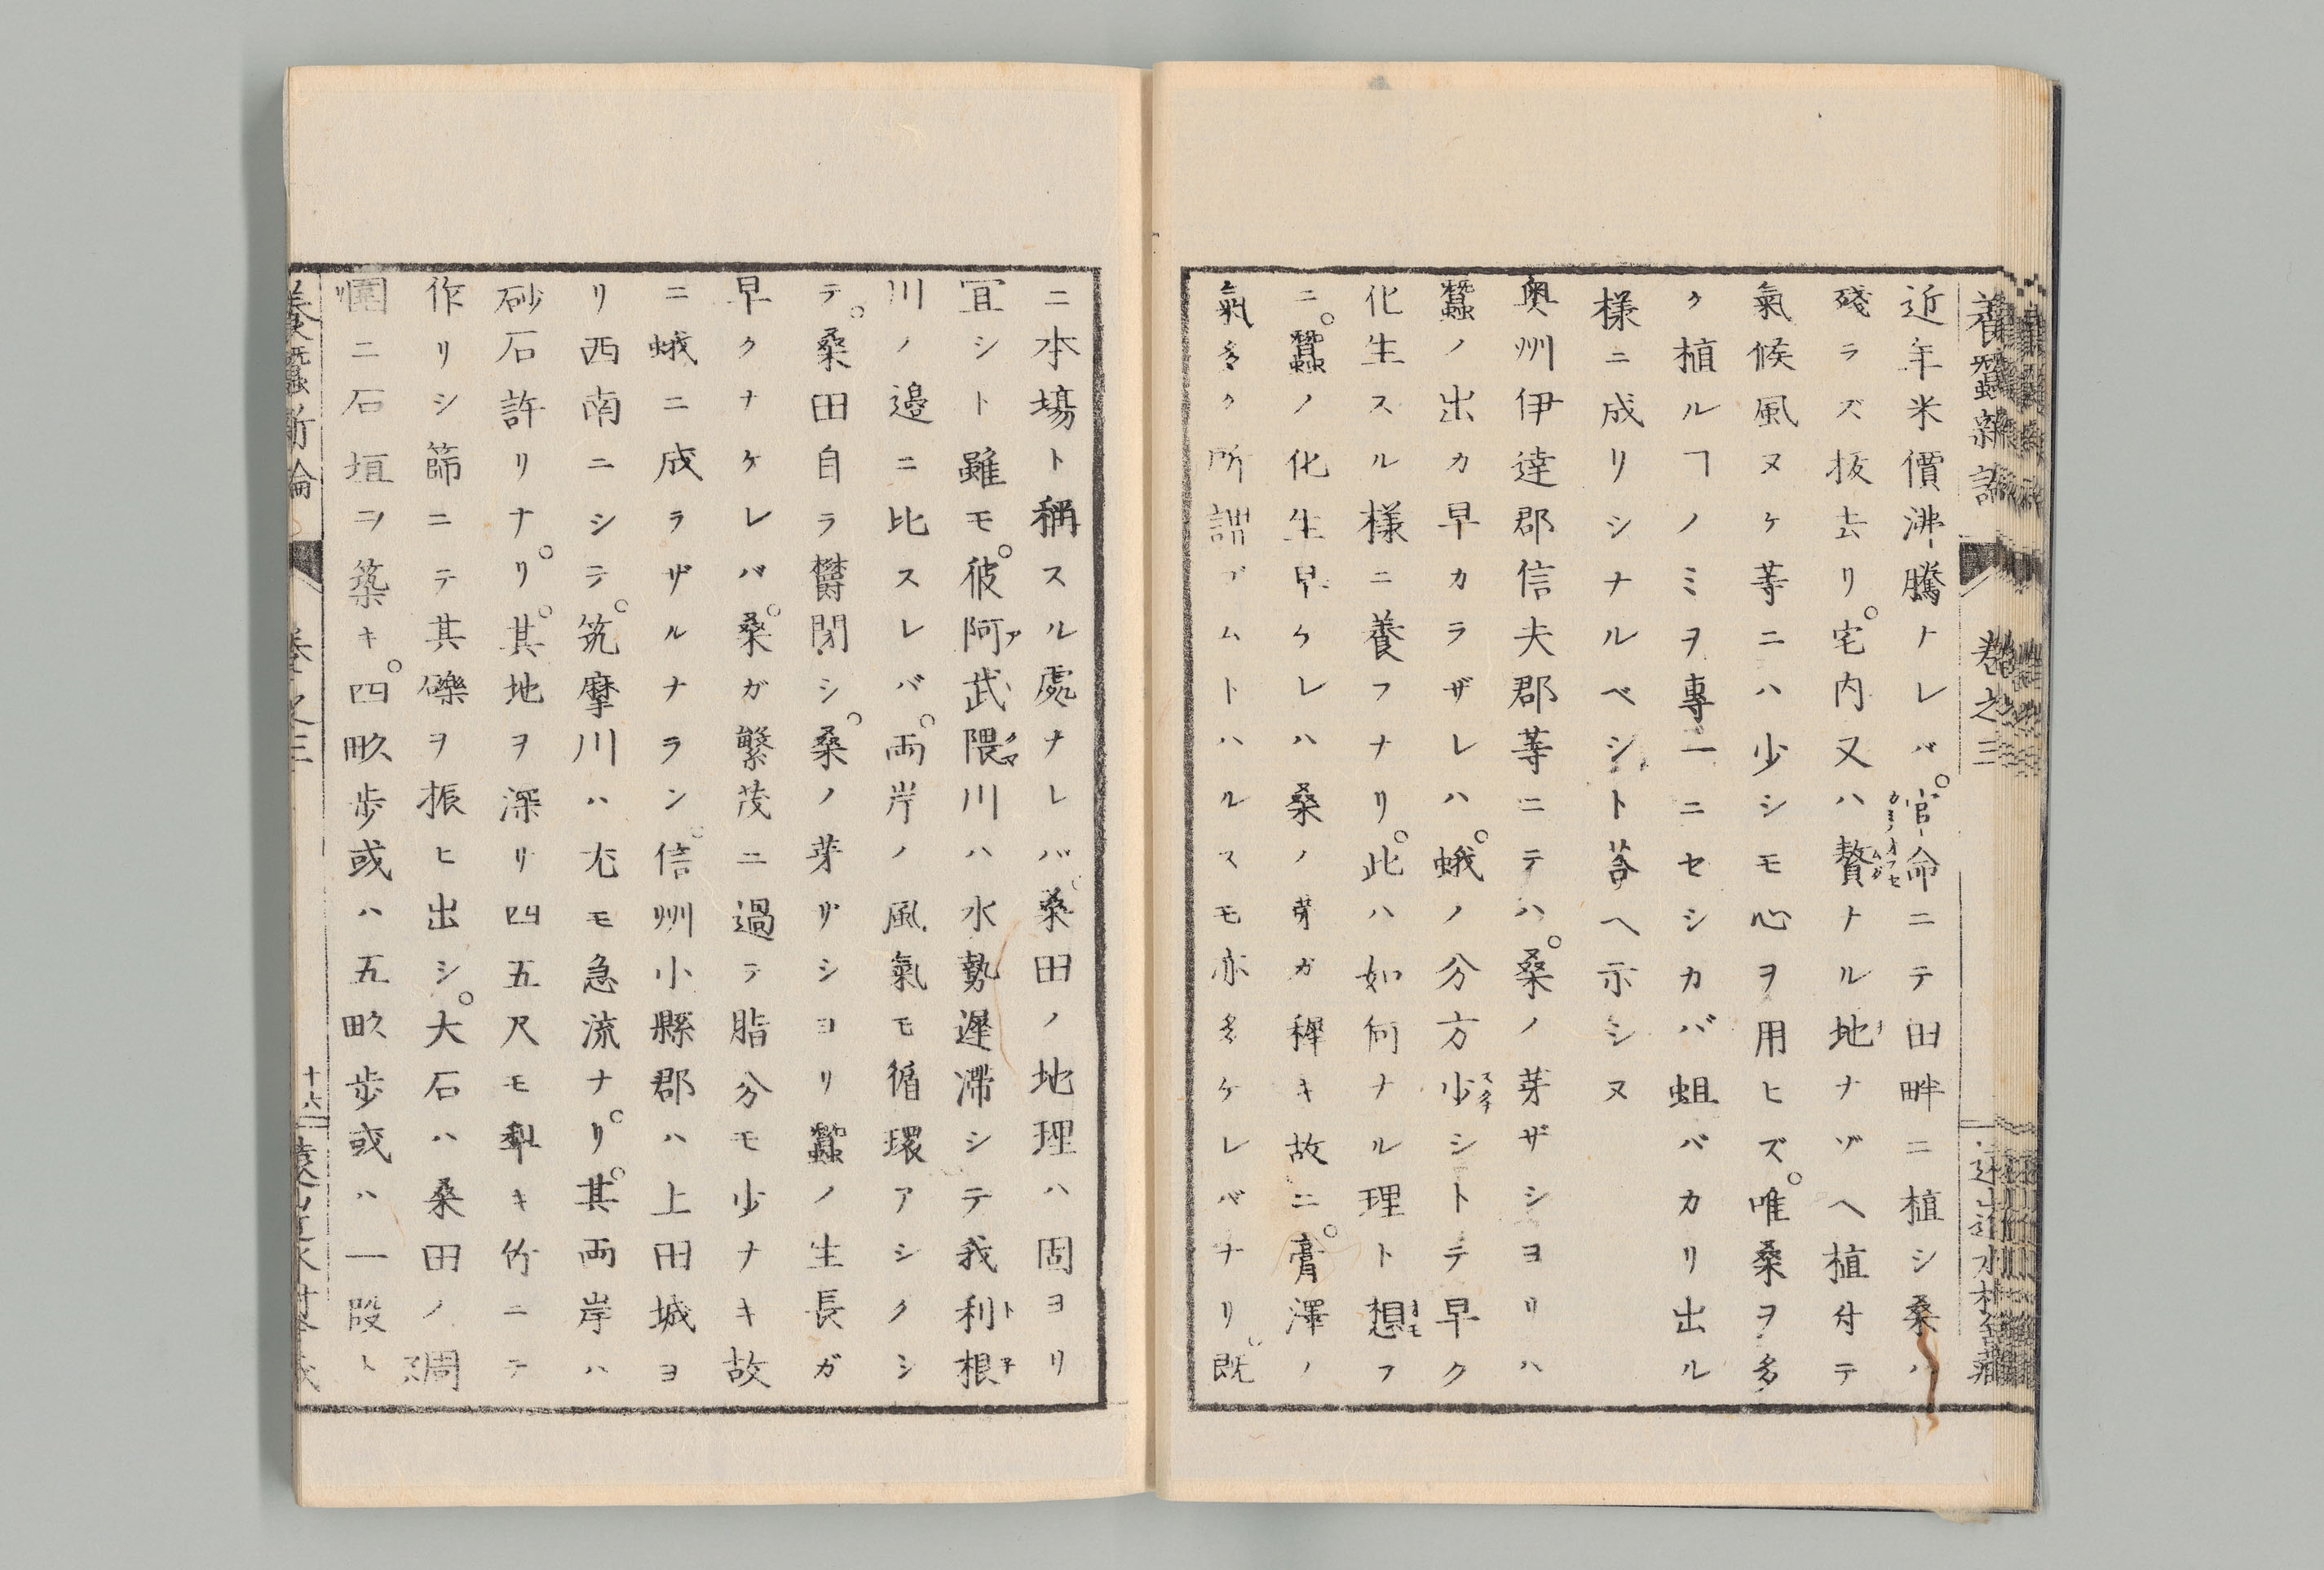 養蠶新論 卷之三
近年米價沸騰ナレバ。官命ニテ田畔ニ植シ桑ハ
殘ラズ抜去リ。宅内又ハ贅ナル地ナゾヘ植付テ
氣候風ヌケ等ニハ少シモ心ヲ用ヒズ。唯桑ヲ多
ク植ルヿノミヲ專一ニセシカバ蛆バカリ出ル
様ニ成リシナルベシト荅ヘ示シヌ
奥州伊達郡信夫郡等ニテハ。桑ノ芽ザシヨリハ
蠶ノ出カ早カラザレハ。蛾ノ分方少シトテ早ク
化生スル様ニ養フナリ。此ハ如何ナル理ト想フ
ニ。蠶ノ化生早ケレハ桑ノ芽ガ穉キ故ニ。膏澤ノ
氣多ク所謂ブムトハルスモ亦多ケレバナリ。既
ニ本塲ト稱スル處ナレバ。桑田ノ地理ハ固ヨリ
宜シト雖モ。彼阿武隈川ハ水勢遲滯シテ我利根
川ノ邊ニ比スレバ。両岸ノ風氣モ循環アシクシ
テ。桑田自ラ欝閉シ。桑ノ芽ザシヨリ蠶ノ生長ガ
早クナケレバ。桑ガ繁茂ニ過テ脂分モ少ナキ故
ニ蛾ニ成ラザルナラン。信州小縣郡ハ上田城ヨ
リ西南ニシテ。筑摩川ハ尤モ急流ナリ。其両岸ハ
砂石許リナリ。其地ヲ深リ四五尺モ犁キ竹ニテ
作リシ篩ニテ其礫ヲ振ヒ出シ。大石ハ桑田ノ周
圍ニ石垣ヲ築キ。四畝歩或ハ五畝歩或ハ一段ト
養蠶新論 卷之三 十六